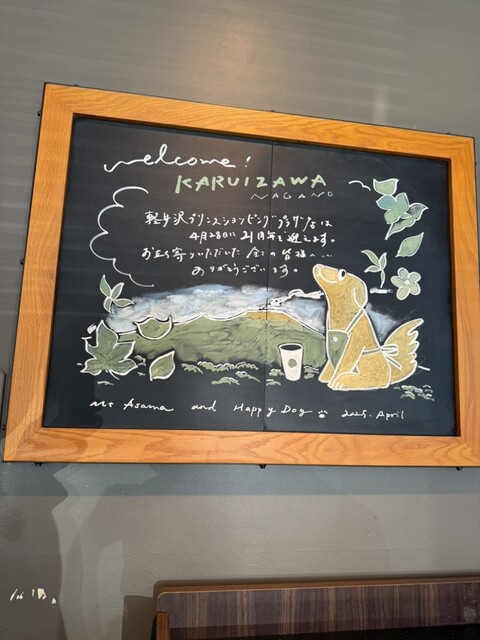 welcome!
KARUIZAWA
NAGANO
軽井沢プリンスショッピングプラザ店は
4月28日に21周年を迎えます。
お立ち寄りいただいた全ての皆様へ…
ありがとうございます。
Mt Asama and Happy Dog 2025. April